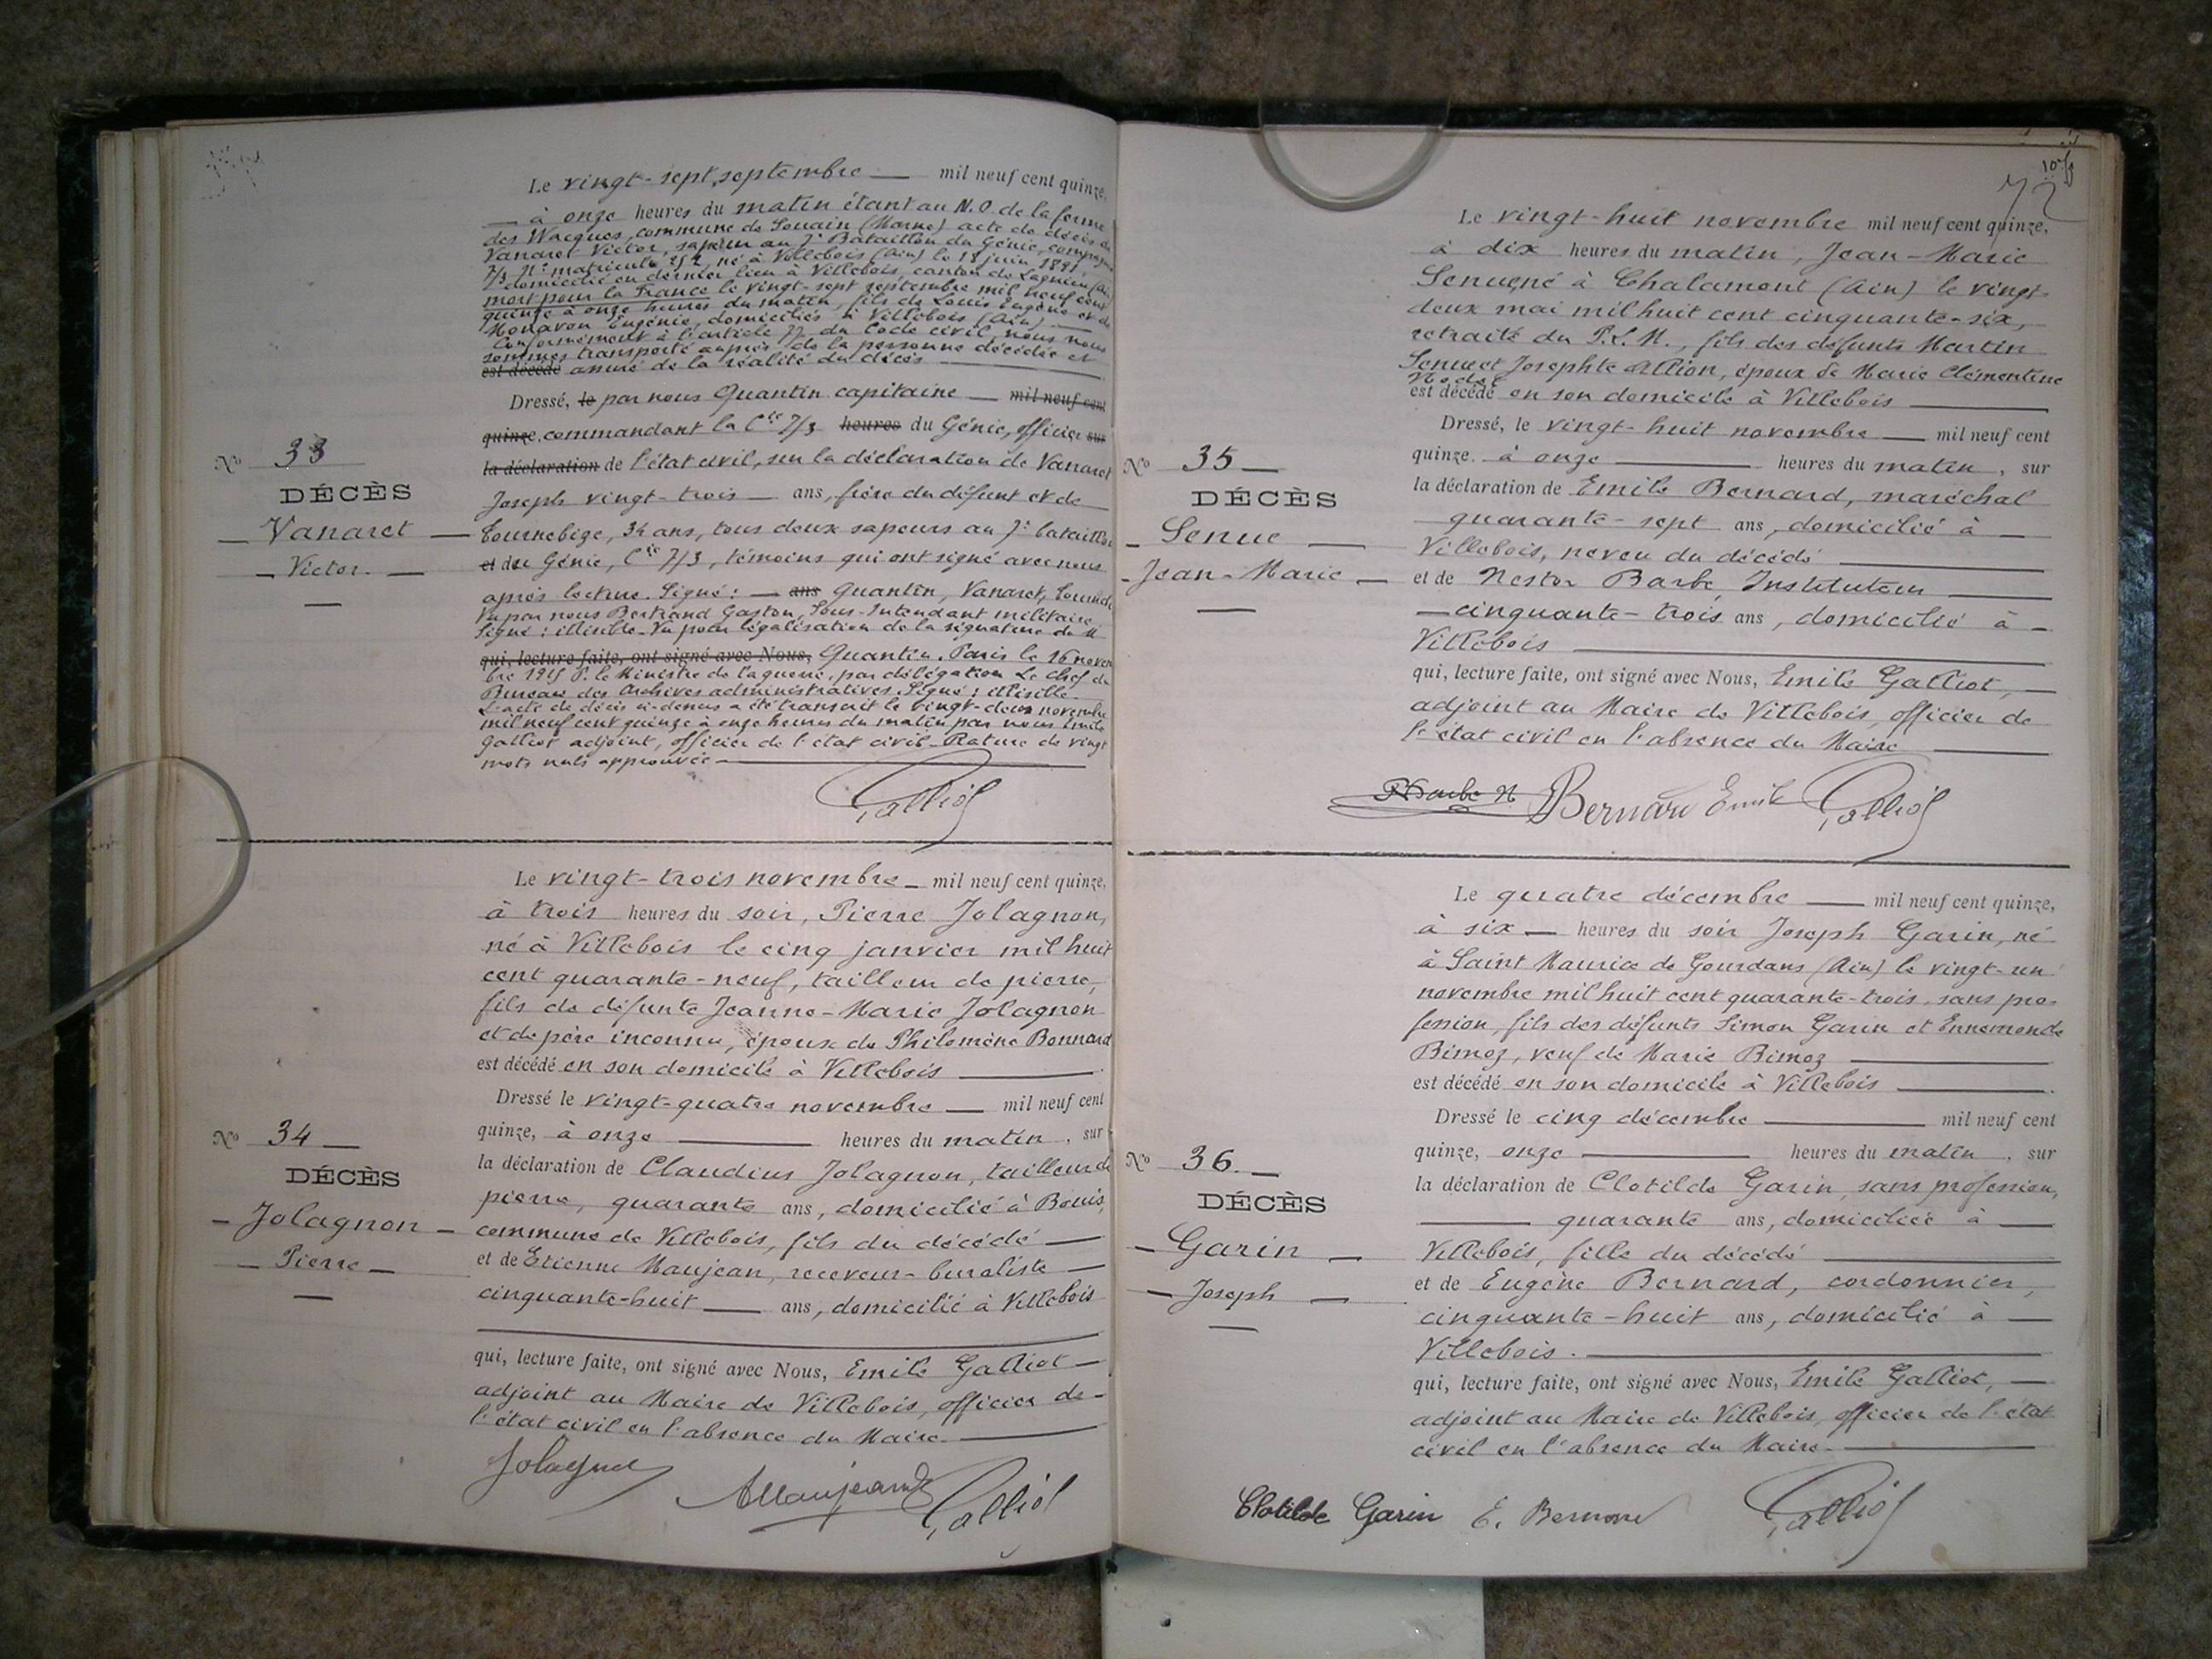 Le vingt-sept septembre — mil neuf cent quinze,
— à onze heures du matin étant au N.O. de la ferme
des Wacques, commune de Souain (Marne) acte de décès de
Vanaret Victor, sapeur au 7e Bataillon du Génie, compagnie
7/3 No matricule, né à Villebois (Ain) le 18 juin 1891,
domicilié en dernier lieu à Villebois, canton de Lagnieu (Ain)
mort pour la France le vingt-sept septembre mil neuf cent
quinze à onze heures du matin, fils de Louis Eugène et de
Monavon Eugénie, domiciliés à Villebois (Ain). —
Conformément à l'article 77 du Code civil nous nous
sommes transporté auprès de la personne décédée et
est décédé assuré de la réalité du décès —
Dressé, le par nous Quantin capitaine — mil neuf cent
quinze, commandant la Cie 7/3 heures du Génie, officier sur
la déclaration de l'état civil, sur la déclaration de Vanaret
Joseph vingt-trois — ans, frère du défunt et de
Tournebize, 34 ans, tous deux sapeurs au 7e bataillon
et du Génie, Cie 7/3, témoins qui ont signé avec nous
après lecture. Signé : — ans Quantin, Vanaret,
Vu par nous Bertrand Gaston, Sous-Intendant militaire
Signé : illisible. Vu pour légalisation de la signature de M
qui, lecture faite, ont signé avec Nous, Quantin. Paris le 16 novem
bre 1915 P. le Ministre de la guerre, par délégation Le Chef du
Bureau des Archives administratives. Signé : illisible —
L'acte de décès ci-dessus a été transcrit le vingt-deux novembre
mil neuf cent quinze à onze heures du matin par nous Emile
Galliot adjoint, officier de l'état civil. Rature de vingt
mots nuls approuvée —
Galliot
No 33
DÉCÈS
— Vanaret —
— Victor. —
Le vingt-trois novembre — mil neuf cent quinze,
à trois heures du soir, Pierre Jolagnon,
né à Villebois le cinq janvier mil huit
cent quarante-neuf, tailleur de pierre,
fils de défunte Jeanne-Marie Jolagnon
et de père inconnu, époux de Philomène Bonnard
est décédé en son domicile à Villebois —
Dressé le vingt-quatre novembre — mil neuf cent
quinze, à onze — heures du matin, sur
la déclaration de Claudius Jolagnon, tailleur de
pierre, quarante ans, domicilié à Bouis,
commune de Villebois, fils du décédé —
et de Etienne Maujean, receveur-buraliste —
cinquante-huit — ans, domicilié à Villebois
qui, lecture faite, ont signé avec Nous, Emile Galliot —
adjoint au Maire de Villebois, officier de
l'état civil en l'absence du Maire. —
Jolagnon Maujean Galliot
No 34 —
DÉCÈS
— Jolagnon —
— Pierre —
72
Le vingt-huit novembre mil neuf cent quinze,
à dix heures du matin, Jean-Marie
Senue né à Chalamont (Ain) le vingt-
deux mai mil huit cent cinquante-six,
retraité du P.L.M., fils des défunts Martin
Senue et Josephte Allion, époux de Marie Clémentine
est décédé en son domicile à Villebois —
Dressé, le vingt-huit novembre — mil neuf cent
quinze. à onze — heures du matin, sur
la déclaration de Emile Bernard, maréchal
quarante-sept ans, domicilié à —
Villebois, neveu du décédé —
et de Nestor Barbe, Instituteur —
— cinquante-trois ans, domicilié à —
Villebois —
qui, lecture faite, ont signé avec Nous, Emile Galliot, —
adjoint au Maire de Villebois, officier de
l'état civil en l'absence du Maire —
Barbe N Bernard Emile Galliot
No 35 —
DÉCÈS
— Senue —
— Jean-Marie —
Le quatre décembre — mil neuf cent quinze,
à six — heures du soir Joseph Garin, né
à Saint Maurice de Gourdans (Ain) le vingt-un
novembre mil huit cent quarante-trois, sans pro-
fession, fils des défunts Simon Garin et Ennemonde
Bimoz, veuf de Marie Bimoz —
est décédé en son domicile à Villebois —
Dressé le cinq décembre — mil neuf cent
quinze, onze — heures du matin, sur
la déclaration de Clotilde Garin, sans profession,
— quarante ans, domiciliée à —
Villebois, fille du décédé —
et de Eugène Bernard, cordonnier,
cinquante-huit ans, domicilié à —
Villebois. —
qui, lecture faite, ont signé avec Nous, Emile Galliot, —
adjoint au Maire de Villebois, officier de l'état
civil en l'absence du Maire. —
Clotilde Garin E. Bernard Galliot
No 36. —
DÉCÈS
— Garin —
— Joseph —